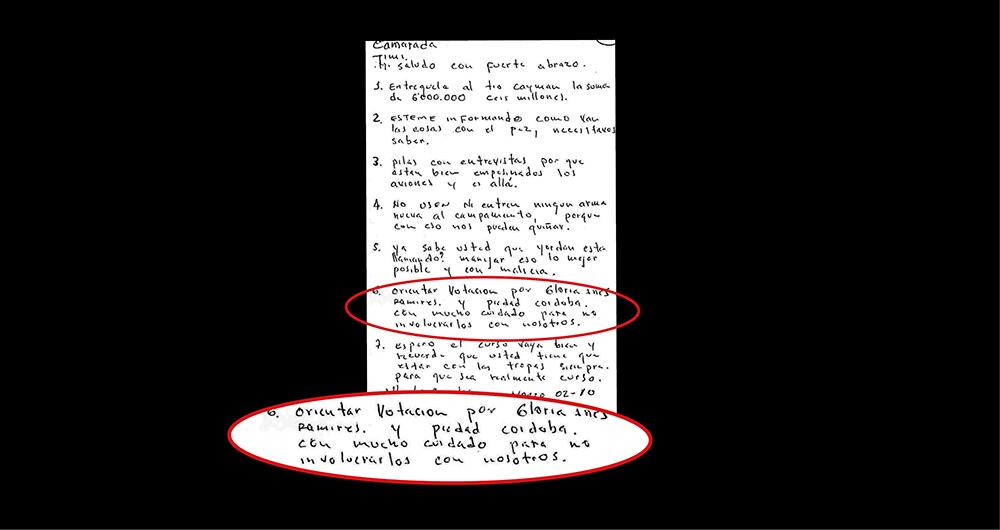 Camarada
Timi.
Mi saludo con fuerte abrazo.
1. Entreguele al tio cayman la suma
de 6'000.000 ceis millones.
2. ESTEME inFormando como van
las cosas con el paz, necesitavos
saber.
3. pilas con entrevistas por que
estan bien empecinados los
aviones y es allá.
4. NO USEN Ni entren ningun arma
nueva al campamento, porque
con eso nos pueden quiñar.
5. ya sabe usted que yordan esta
llamando? manejar eso lo mejor
posible y con malicia.
6. orientar Votacion por Gloria ines
Ramires. y piedad cordoba.
con mucho cuidado para no
involucrarlos con nosotros.
7. espero el curso vaya bien y
recuerde que usted tiene que
estar con las tropas siempre.
para que sea realmente curso.
02-10
6. orientar Votacion por Gloria ines
Ramires. y piedad cordoba.
con mucho cuidado para no
involucrarlos con nosotros.